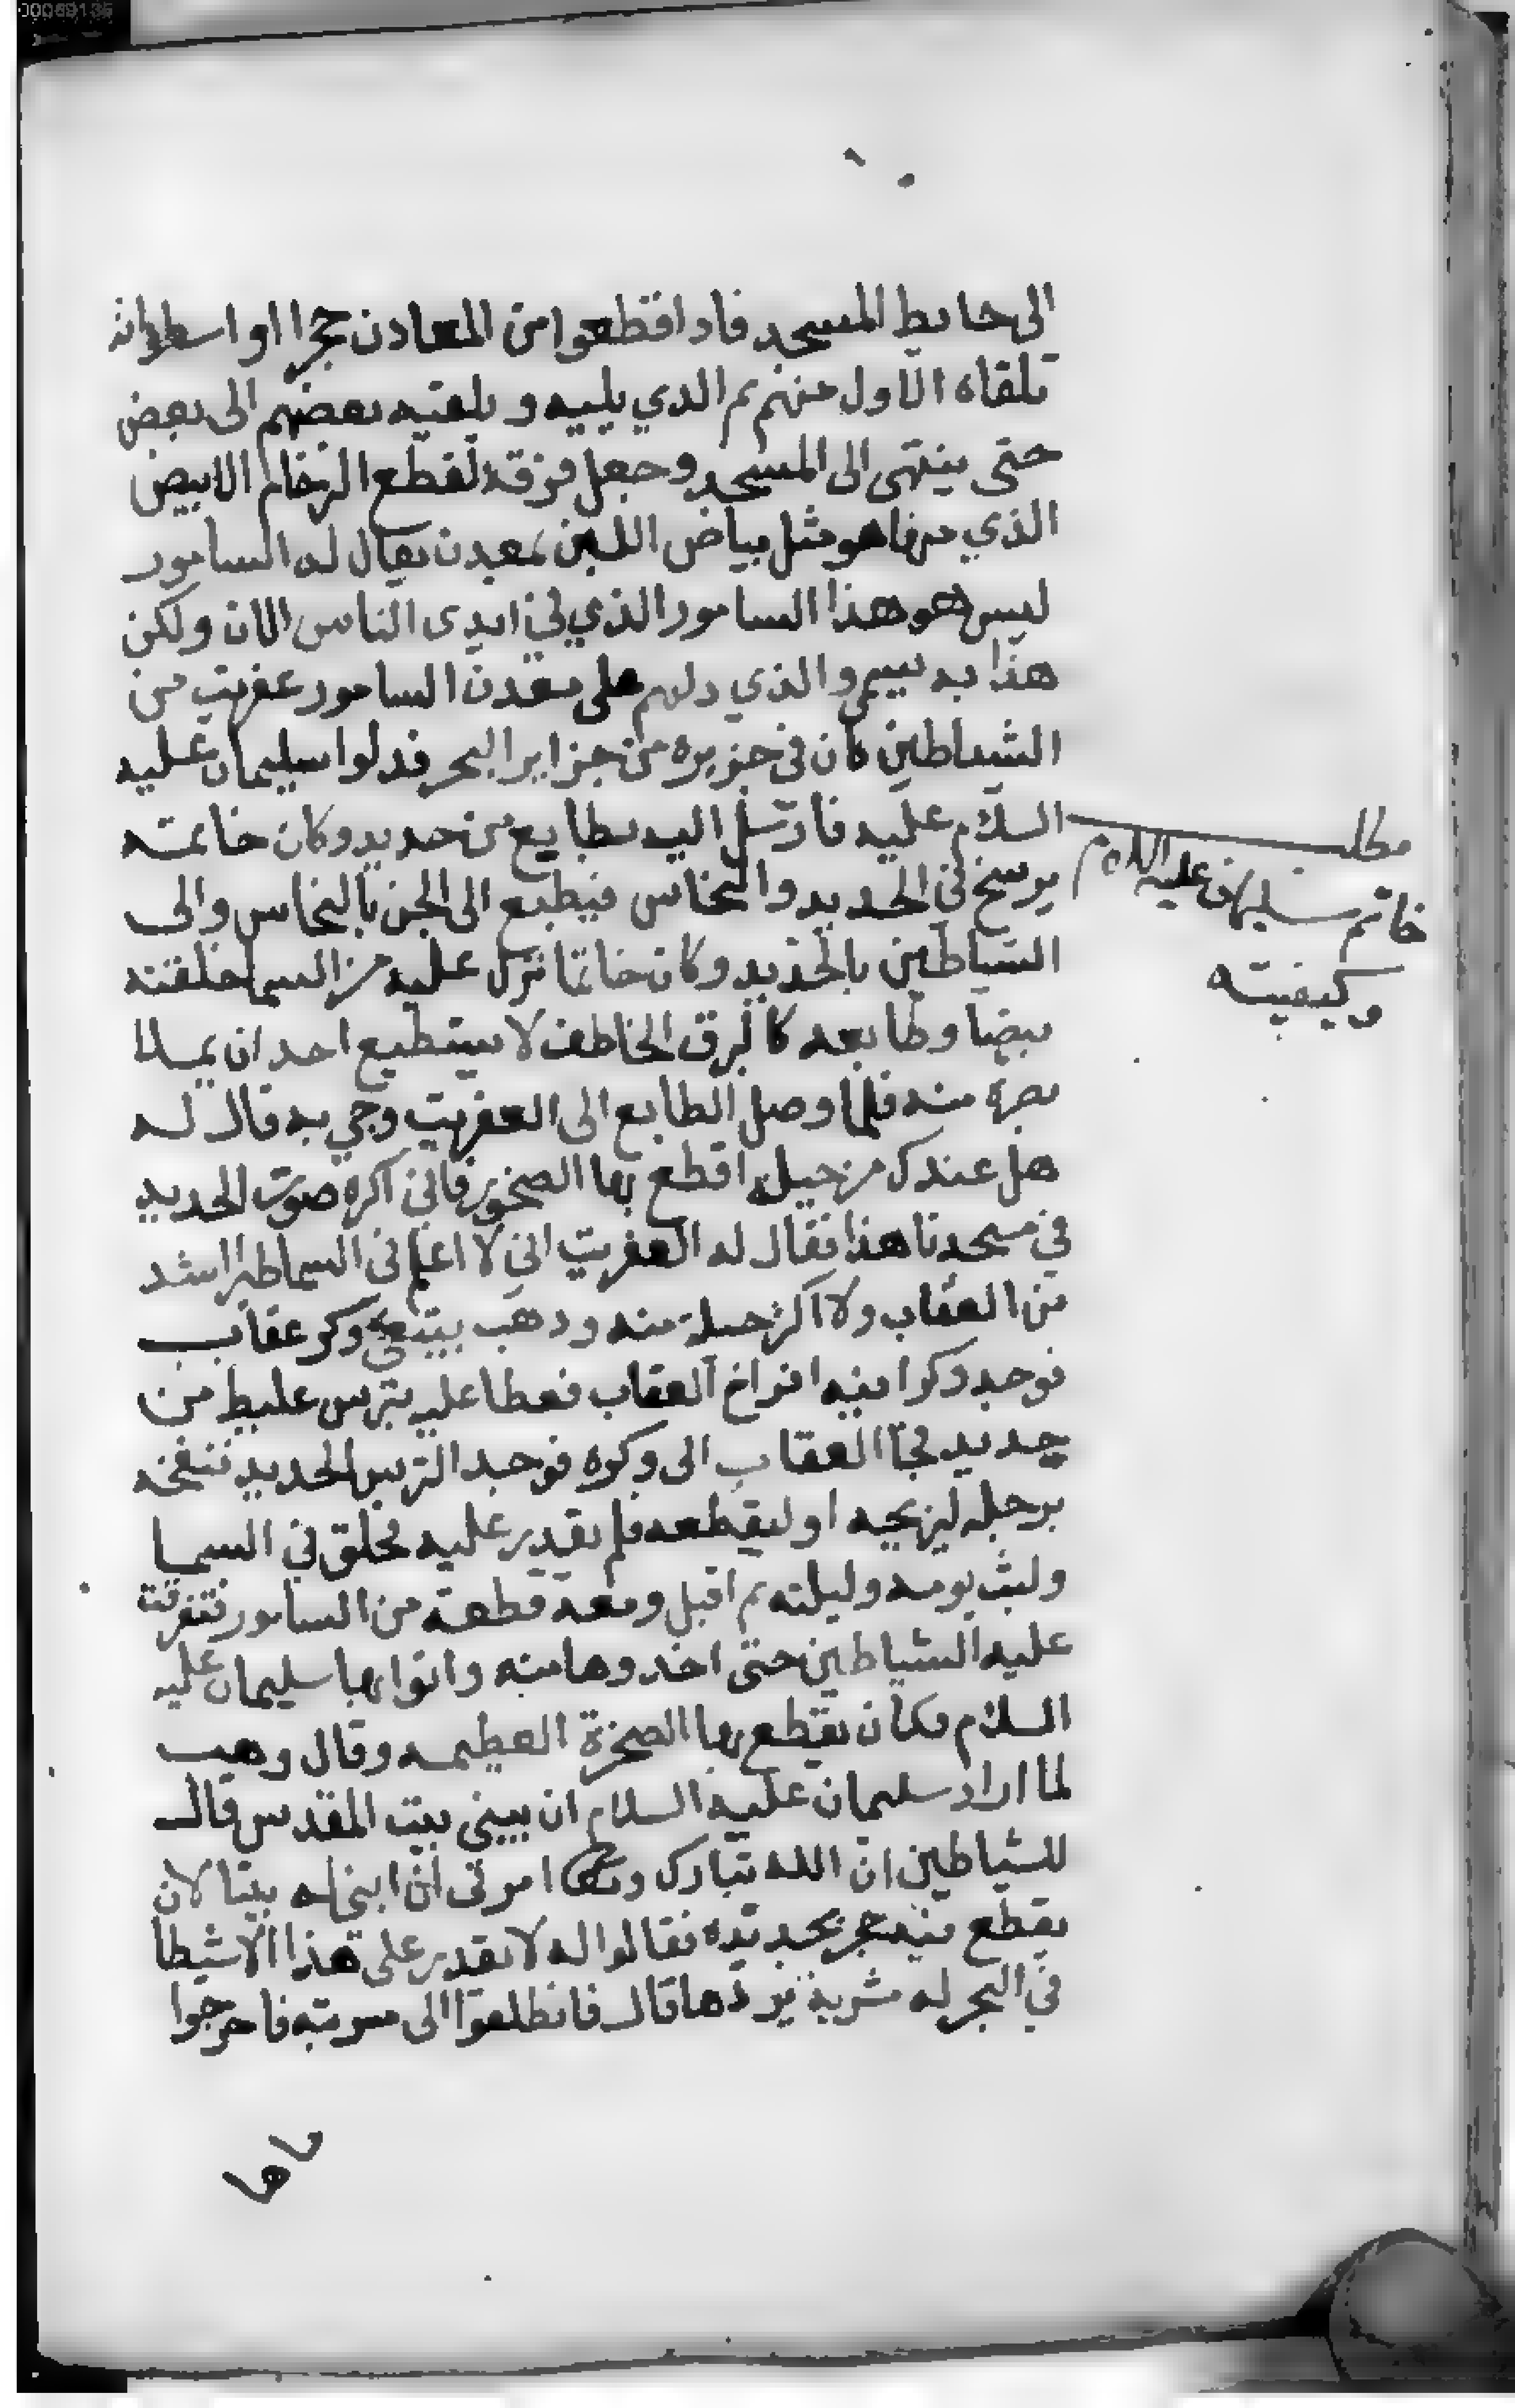 الى حايط المسجد فاذا قطعوا من المعادن حجرا او اسطوانه
تلقاه الاول منهم ثم الذي يليه ويلقيه بعضهم الى بعض
حتى ينتهى الى المسجد وجعل فرقه لقطع الرخام الابيض
الذي منها هو مثل بياض اللبن بمعدن يقال له السامور
ليس هو هذا السامور الذي في ايدى الناس الان ولكن
هذا به سمي والذي دلهم على معدن السامور عفريت من
الشياطين كان في جزيره من جزاير البحر فدلوا سليمان عليه
السلام عليه فارسل اليه بطابع من حديد وكان خاتمه
يرسخ في الحديد والنحاس فيطبع الى الجن بالنحاس والى
الشياطين بالحديد وكان خاتما نزل عليه من السما حلقته
بيضا وطابعه كالبرق الخاطف لا يستطيع احد ان يملا
بصره منه فلما وصل الطابع الى العفريت وجي به قال له
هل عندك من حيله اقطع بها الصخور فاني اكره صوت الحديد
في مسجدنا هذا فقال له العفريت اني لا اعلم في السما طيرا اشد
من العقاب ولا اكثر حيلة منه وذهب يبتغي وكر عقاب
فوجد وكرا فيه افراخ العقاب فغطا عليه بترس غليظ من
حديد فجا العقاب الى وكره فوجد الترس الحديد فنفخه
برجله ليزيحه او ليقطعه فلم يقدر عليه فحلق في السما
ولبث يومه وليلته ثم اقبل ومعه قطعة من السامور فتفرقت
عليه الشياطين حتى اخذوها منه واتوا بها سليمان عليه
السلام فكان يقطع بها الصخرة العظيمه وقال وهب
لما اراد سليمان عليه السلام ان يبني بيت المقدس قال
للشياطين ان الله تبارك وتعالى امرني ان ابني له بيتا لا
يقطع فيه حجر بحديده فقالوا له لا يقدر على هذا الا شيطا
في البحر له مشربة يردها قال فانطلقوا الى مشربته فاخرجوا
ماها
مطلب
خاتم سليمان عليه السلام
وكيفيته